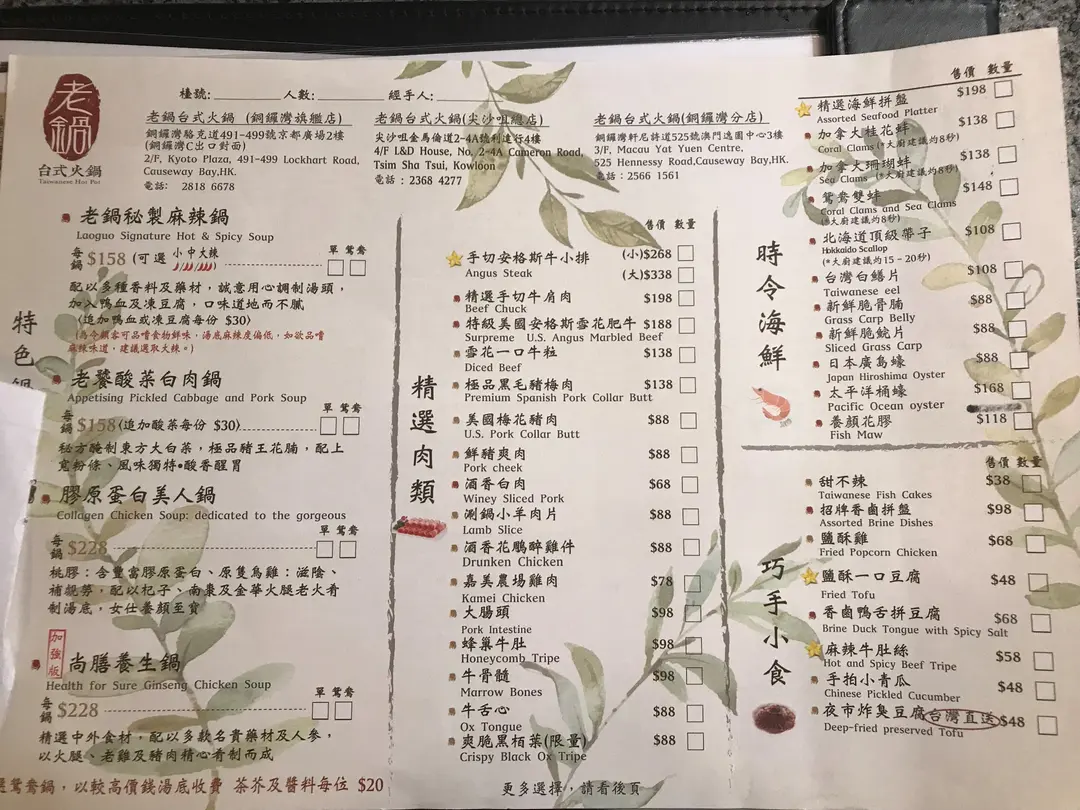 老鍋
台式火鍋
Taiwanese Hot Pot
檯號: 人數: 經手人:
老鍋台式火鍋 (銅鑼灣旗艦店)
銅鑼灣駱克道491-499號京都廣場2樓
(銅鑼灣C出口對面)
2/F, Kyoto Plaza, 491-499 Lockhart Road,
Causeway Bay,HK.
電話: 2818 6678
老鍋台式火鍋(尖沙咀總店)
尖沙咀金馬倫道2-4A號利達行4樓
4/F L&D House, No. 2-4A Cameron Road,
Tsim Sha Tsui, Kowloon
電話 : 2368 4277
老鍋台式火鍋(銅鑼灣分店)
銅鑼灣軒尼詩道525號澳門逸園中心3樓
3/F, Macau Yat Yuen Centre,
525 Hennessy Road,Causeway Bay,HK.
電話 : 2566 1561
特色
老鍋秘製麻辣鍋
Laoguo Signature Hot & Spicy Soup
單 鴛鴦
每鍋 $158 (可選 小中大辣
配以多種香料及藥材，誠意用心調制湯頭，
加入鴨血及凍豆腐，口味道地而不膩
(追加鴨血或凍豆腐每份 $30)
(為令顧客可品嚐食物鮮味，湯底麻辣度偏低，如欲品嚐
麻辣味道，建議選取大辣。)
老饕酸菜白肉鍋
Appetising Pickled Cabbage and Pork Soup
單 鴛鴦
每鍋 $158(追加酸菜每份 $30)
秘方醃制東方大白菜，極品豬王花腩，配上
寬粉條、風味獨特•酸香醒胃
膠原蛋白美人鍋
Collagen Chicken Soup: dedicated to the gorgeous
單 鴛鴦
每鍋 $228
桃膠：含豐富膠原蛋白、原隻烏雞：滋陰、
補虧勞，配以杞子、南棗及金華火腿老火肴
制湯底，女仕養顏至寶
加強版
尚膳養生鍋
Health for Sure Ginseng Chicken Soup
單 鴛鴦
每鍋 $228
精選中外食材，配以多款名貴藥材及人參，
以火腿、老雞及豬肉精心肴制而成
選鴛鴦鍋，以較高價錢湯底收費 茶芥及醬料每位 $20
精選肉類
售價 數量
手切安格斯牛小排 (小)$268
Angus Steak (大)$338
精選手切牛肩肉 $198
Beef Chuck
特級美國安格斯雪花肥牛 $188
Surpreme U.S. Angus Marbled Beef
雪花一口牛粒 $138
Diced Beef
極品黑毛豬梅肉 $138
Premium Spanish Pork Collar Butt
美國梅花豬肉 $88
U.S. Pork Collar Butt
鮮豬爽肉 $88
Pork cheek
酒香白肉 $68
Winey Sliced Pork
涮鍋小羊肉片 $88
Lamb Slice
酒香花鵰醉雞件 $88
Drunken Chicken
嘉美農場雞肉 $78
Kamei Chicken
大腸頭 $98
Pork Intestine
蜂巢牛肚 $98
Honeycomb Tripe
牛骨髓 $98
Marrow Bones
牛舌心 $88
Ox Tongue
爽脆黑栢葉(限量) $88
Crispy Black Ox Tripe
更多選擇，請看後頁
時令海鮮
售價 數量
精選海鮮拼盤 $198
Assorted Seafood Platter
加拿大桂花蚌 $138
Coral Clams (*大廚建議灼8秒)
加拿大珊瑚蚌 $138
Sea Clams (*大廚建議灼8秒)
鴛鴦雙蚌 $148
Coral Clams and Sea Clams
(*大廚建議灼8秒)
北海道頂級帶子 $108
Hokkaido Scallop
(*大廚建議灼15-20秒)
台灣白鱔片 $108
Taiwanese eel
新鮮脆骨腩 $88
Grass Carp Belly
新鮮脆鯇片 $88
Sliced Grass Carp
日本廣島蠔 $88
Japan Hiroshima Oyster
太平洋桶蠔 $168
Pacific Ocean oyster
養顏花膠 $118
Fish Maw
巧手小食
售價 數量
甜不辣 $38
Taiwanese Fish Cakes
招牌香鹵拼盤 $98
Assorted Brine Dishes
鹽酥雞 $68
Fried Popcorn Chicken
鹽酥一口豆腐 $48
Fried Tofu
香鹵鴨舌拼豆腐 $68
Brine Duck Tongue with Spicy Salt
麻辣牛肚絲 $58
Hot and Spicy Beef Tripe
手拍小青瓜 $48
Chinese Pickled Cucumber
夜市炸臭豆腐 台灣直送 $48
Deep-fried preserved Tofu